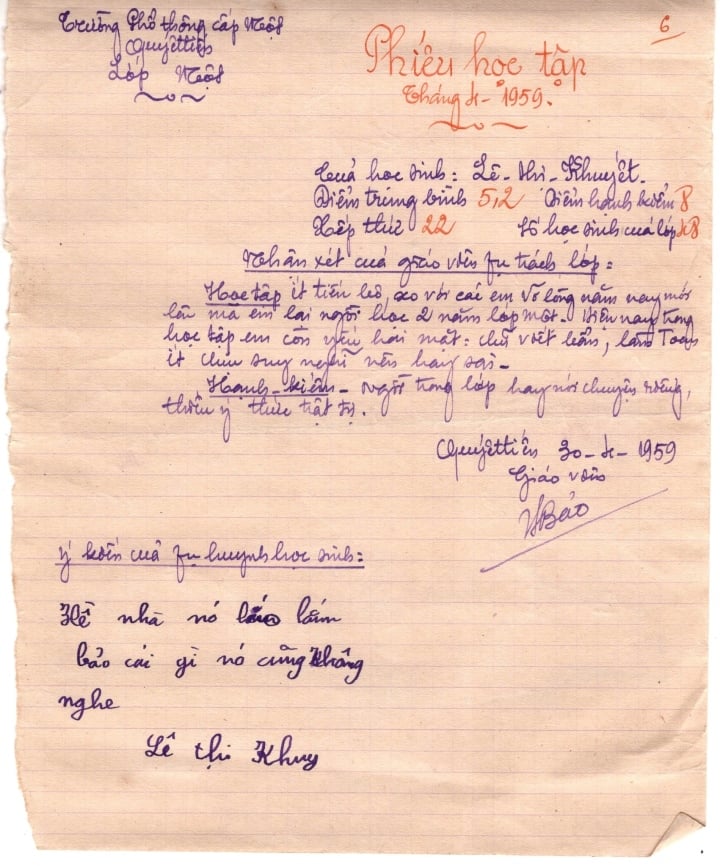 Trường Phổ thông cấp Một
Quyết tiến
Lớp Một
6
Phiếu học tập
Tháng 4 - 1959.
Của học sinh: Lê - thị - Khuyết.
Điểm trung bình 5,2 Điểm hạnh kiểm 8
Xếp thứ 22 Số học sinh của lớp 48
Nhận xét của giáo viên fụ trách lớp:
Học tập ít tiến bộ, so với các em Vỡ lòng năm nay mới
lên mà em lại ngồi học 2 năm lớp một. Hiện nay trong
học tập em còn yếu hai mặt: chữ viết bẩn, làm Toán
ít chịu suy nghĩ nên hay sai -
Hạnh - kiểm - Ngồi trong lớp hay nói chuyện riêng,
thiếu ý thức trật tự.
Quyết tiến 30 - 4 - 1959
Giáo viên
VBảo
Ý kiến của fụ huynh học sinh:
Hề nhà nó láo lắm
bảo cái gì nó cũng không
nghe
Lê thị Khuy